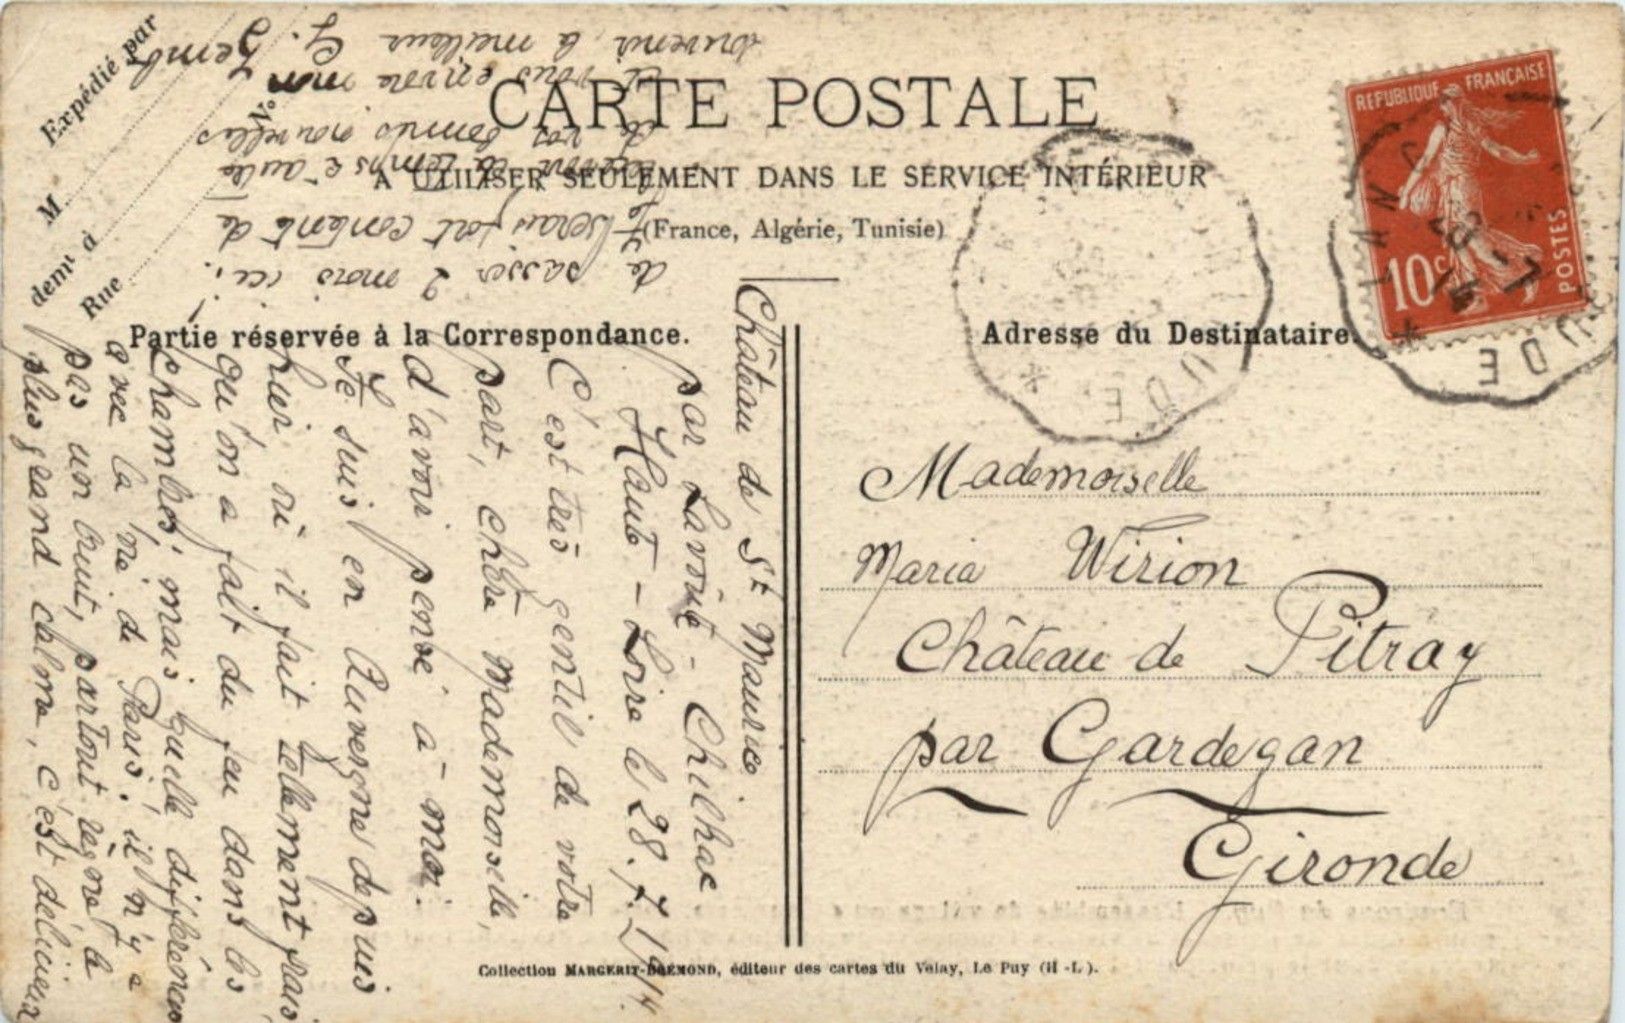 CARTE POSTALE
A UTILISER SEULEMENT DANS LE SERVICE INTÉRIEUR
(France, Algérie, Tunisie)
Expédié par
M
demt à
Rue
No
REPUBLIQUE FRANÇAISE
10c
POSTES
Partie réservée à la Correspondance.
Adresse du Destinataire.
Château de St Maurice
par Lavoûte-Chilhac
Haute-Loire le 28.7.1914
C'est très gentil de votre
part, chère Mademoiselle,
d'avoir pensé à moi.
Je suis en Auvergne depuis
hier où il fait tellement frais
qu'on a fait du feu dans les
chambres; mais quelle différence
avec la vie de Paris! il n'y a
pas un bruit, partout règne le
plus grand calme, c'est délicieux
de passer 2 mois ici!
Je serais fort contente de
de vos bonnes nouvelles
et vous envoie mon
souvenir le meilleur G.
Mademoiselle
Maria Wirion
Château de Pitray
par Gardegan
Gironde
Collection MARGERIT-BRÉMOND, éditeur des cartes du Velay, Le Puy (H.-L.).